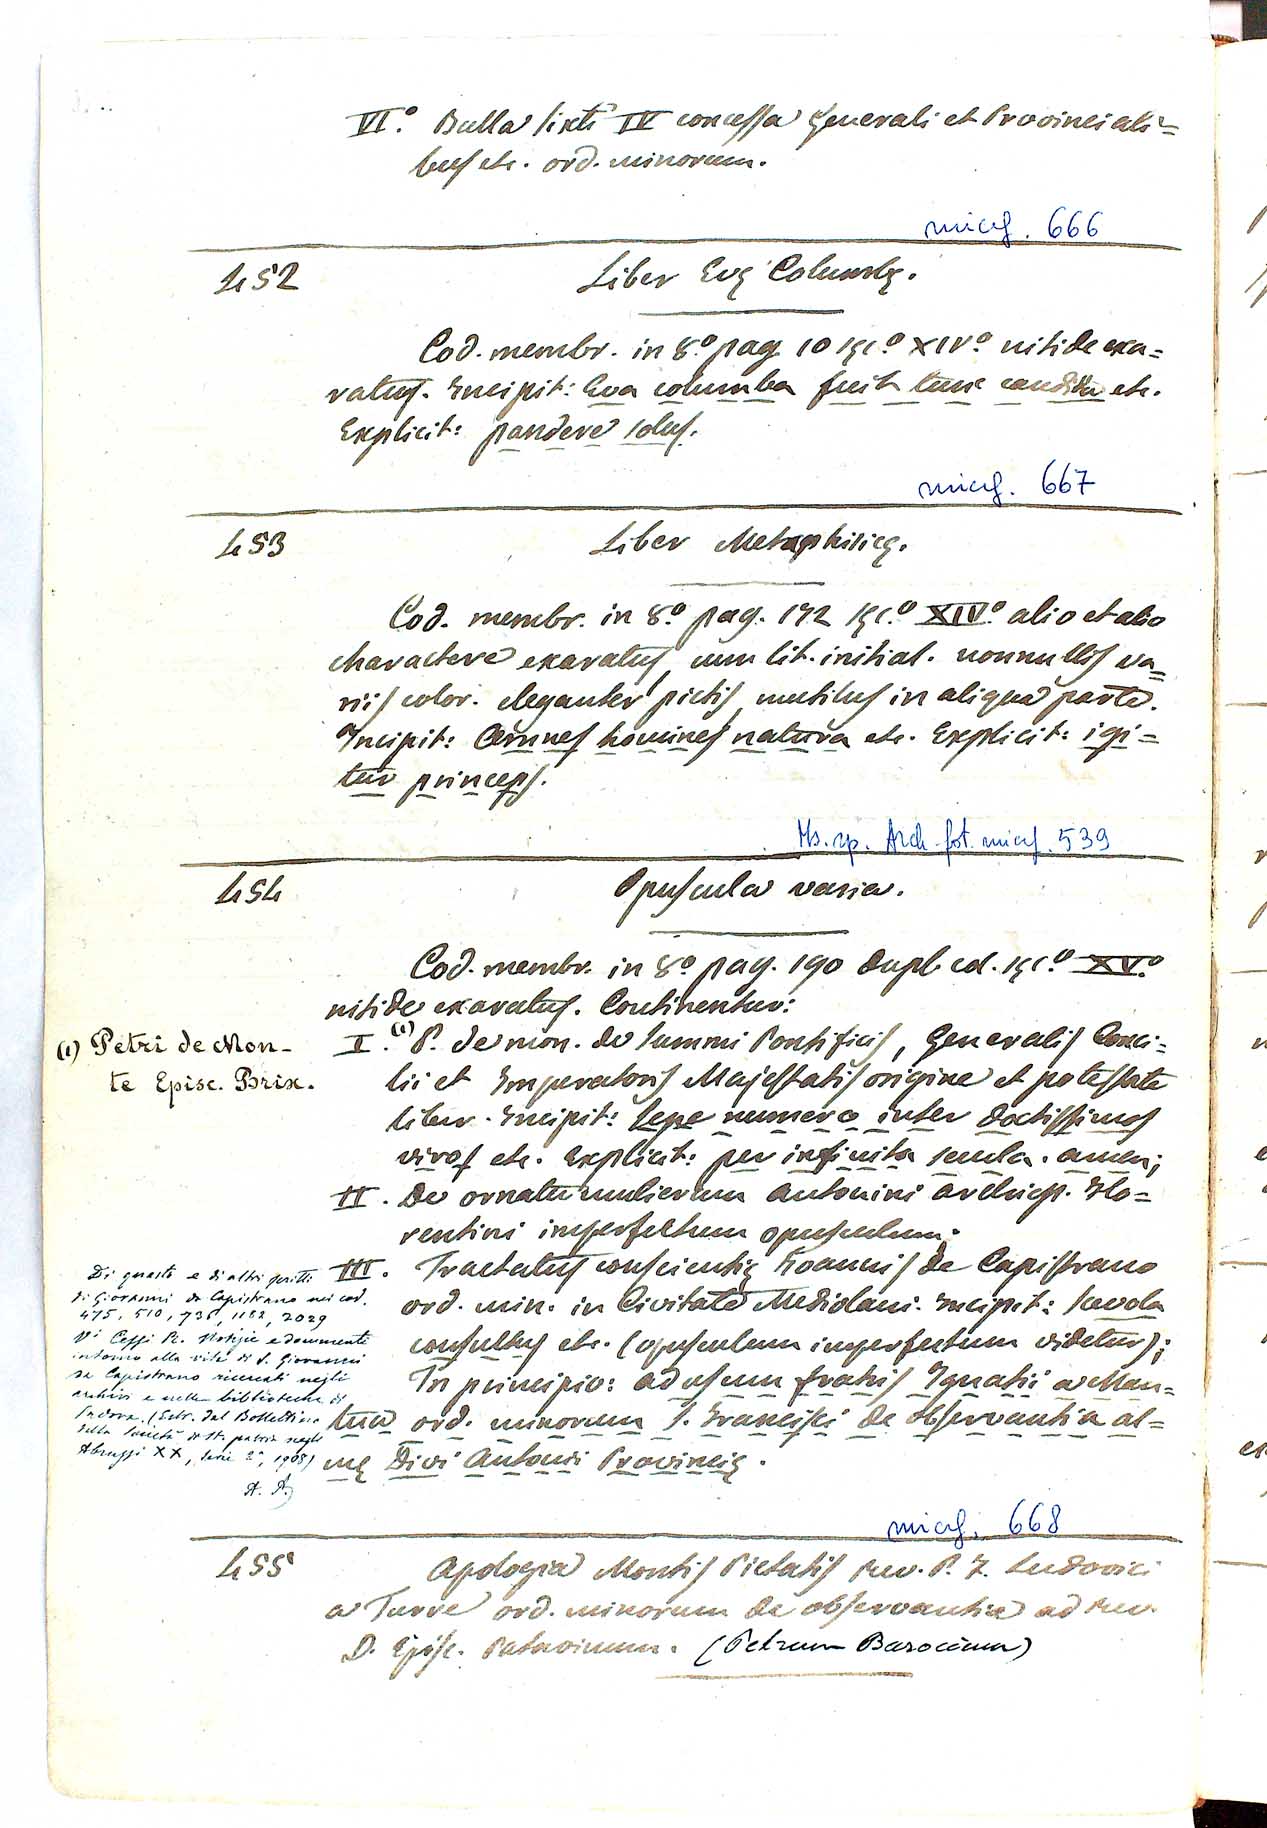 VI.º Bulla Sixti IV concessa Generali et Provinciali=
bus etc. ord. minorum.
microf. 666
452 Liber Evę Columbę.
Cod. membr. in 8.º pag. 10 sęc.º XIV.º nitide exa=
ratus. Incipit: Eva columba fuit tunc candida etc.
Explicit: pandere solus.
microf. 667
453 Liber Metaphisicę.
Cod. membr. in 8.º pag. 172 sęc.º XIV.º alio et alio
charactere exaratus, cum lit. initial. nonnullis va=
riis color. eleganter pictis, mutilus in aliqua parte.
Incipit: Omnes homines natura etc. Explicit: igi=
tur princeps.
Ms. sp. Arch. fot. microf. 539
454 Opuscula varia.
Cod. membr. in 8.º pag. 190 dupl. col. sęc.º XV.º
nitide exaratus. Continentur:
I.(1) P. de mon. de Summi Pontificis, Generalis Conci=
lii et Imperatoris Majestatis origine et potestate
liber. Incipit: Sepe numero inter doctissimos
viros etc. Explicit: per infinita secula. amen;
(1) Petri de Mon-
te Episc. Brix.
II. De ornatu mulierum Antonini Archiep. Flo=
rentini imperfectum opusculum.
III. Tractatus conscientię Joannis de Capistrano
ord. min. in Civitate Mediolani. Incipit: Scevola
consultus etc. (opusculum imperfectum videtur);
In principio: ad usum fratris Ignatii a Man=
tua ord. minorum S. Francisci de observantia al=
mę Divi Antonii Provincię.
Di questo e di altri scritti
di Giovanni da Capistrano nei cod.
475, 510, 736, 1182, 2029
Vi Ceffi R. Notizie e documenti
intorno alla vita di S. Giovanni
da Capistrano ricercati negli
archivi e nelle biblioteche di
Padova. (Estr. dal Bollettino
della Società di St. patria negli
Abruzzi XX, serie 2ª, 1908)
A. A.
microf. 668
455 Apologia Montis Pietatis Rev. P. F. Ludovici
a Turre ord. minorum de observantia ad Rev.
D. Episc. Patavinum. (Petrum Barocium)